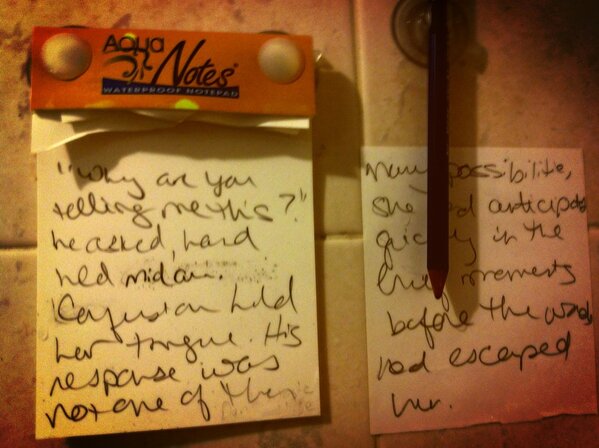 Aqua
Notes®
WATERPROOF NOTEPAD
"Why are you
telling me this?"
he asked, hand
held midair.
Confusion held
her tongue. His
response was
not one of the
many possibilitie,
she had anticipated
quickly in the
brief moments
before the words
had escaped
her.